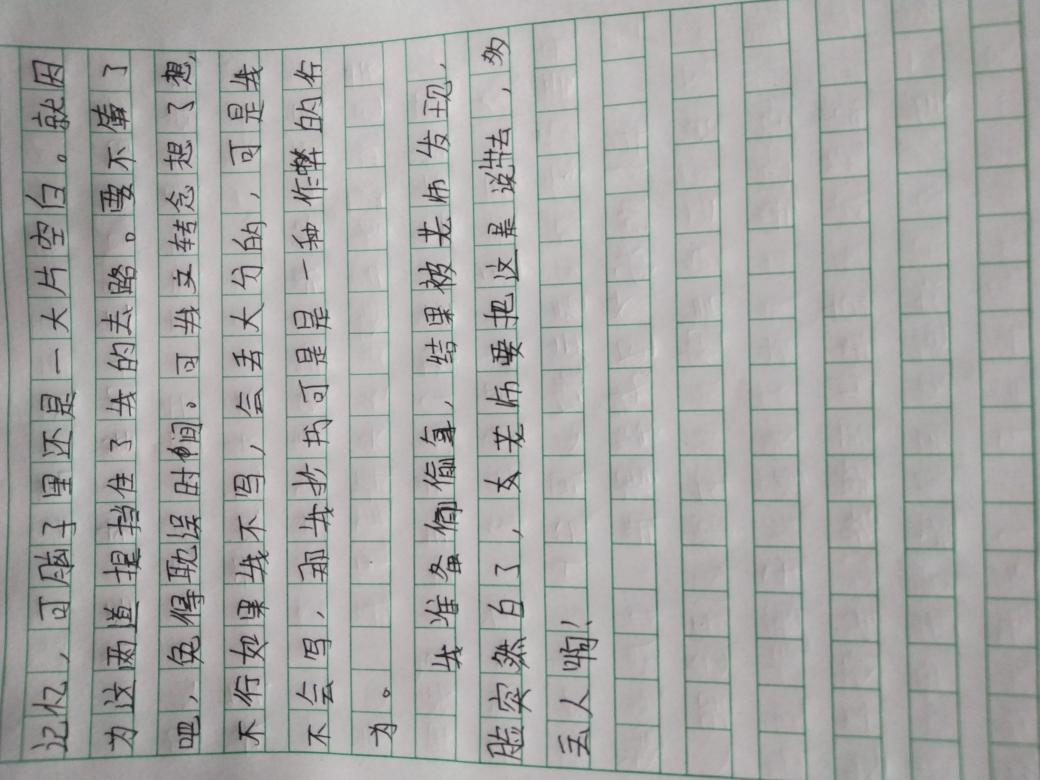 记忆，可脑子里还是一大片空白。就因
为这两道提挡住了我的去路。要不算了
吧，免得耽误时间。可我又转念想了想，
不行如果我不写，会丢大分的，可是我
不会写，那我抄书可是是一种作弊的行
为。
我准备偷偷拿，结果被老师发现，
脸突然白了，女老师要把这是说出去，多
丢人啊！